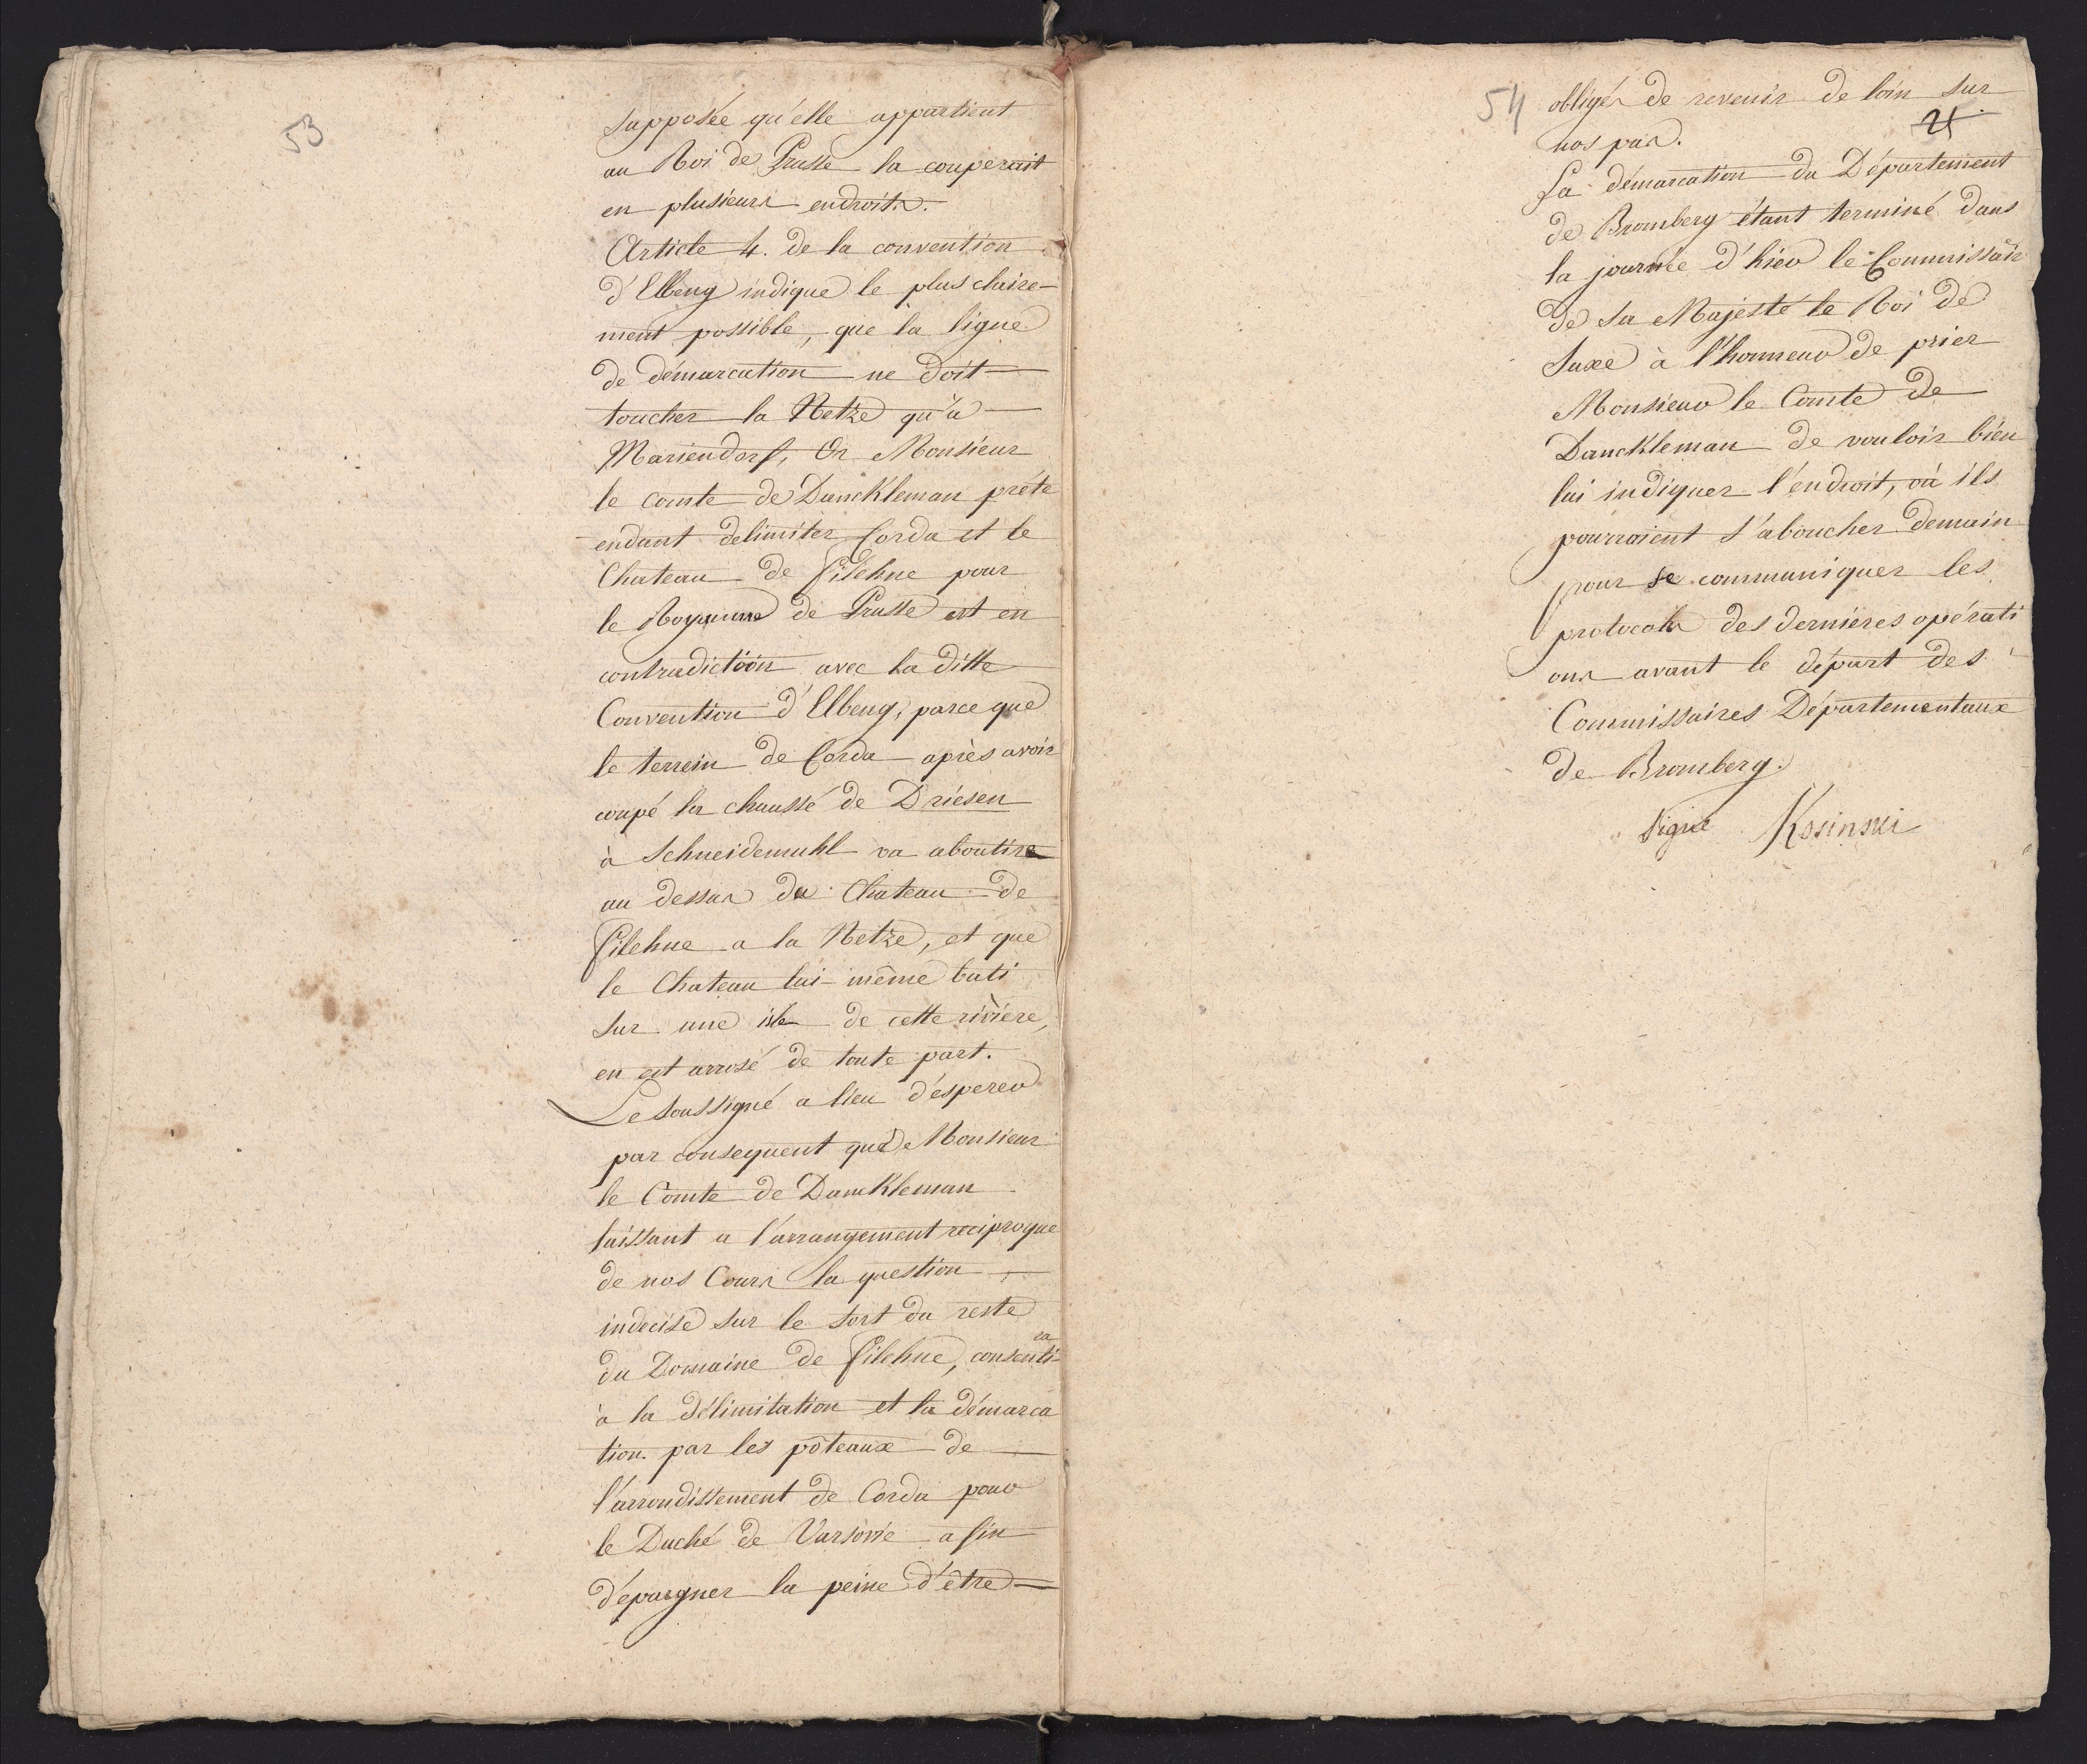 53
supposée qu'elle appartient
au Roi de Prusse la couperait
en plusieurs endroits.
Article 4. de la convention
d'Elbeng indique le plus claire-
ment possible, que la ligne
de démarcation ne doit
toucher la Netze qu'à
Mariendorf, Or Monsieur
le comte de Danckleman préte
endant delimiter Corda et le
Chateau de Filehne pour
le Royaume de Prusse est en
contradictiòn avec la ditte
Convention d'Elbeng, parceque
le terrein de Corda après avoir
coupé la chaussé de Driesen
à Schneidemuhl va aboutire
au dessus du Chateau de
Filehne a la Netze, et que
le Chateau lui-même bati
sur une isle de cette rivière,
en est arrosé de toute part.
Le soussigné a lieu d'esperer
par consequent que Monsieur
le Comte de Danckleman
laissant a l'arrangement reciproque
de nos Cours la question
indecise sur le sort du reste
du Domaine de Filehne, consentira
à la délimitation et la démarca
tion par les pôteaux de
l'arrondissement de Corda pour
le Duché de Varsovie afin
d'épargner la peine d'être
54
obligés de revenir de loin sur
nos pas.
La démarcation du Département
de Bromberg étant terminé dans
la journée d'hier le Commissair
de Sa Majesté le Roi de
Saxe à l'honneur de prier
Monsieur le Comte de
Danckleman de vouloir bien
lui indiquer l'endroit, où ils
pourraient s'aboucher demain
pour se communiquer les
protocols des dernières opérati
ons avant le départ des
Commissaires Départementaux
de Bromberg.
signé Kosinski